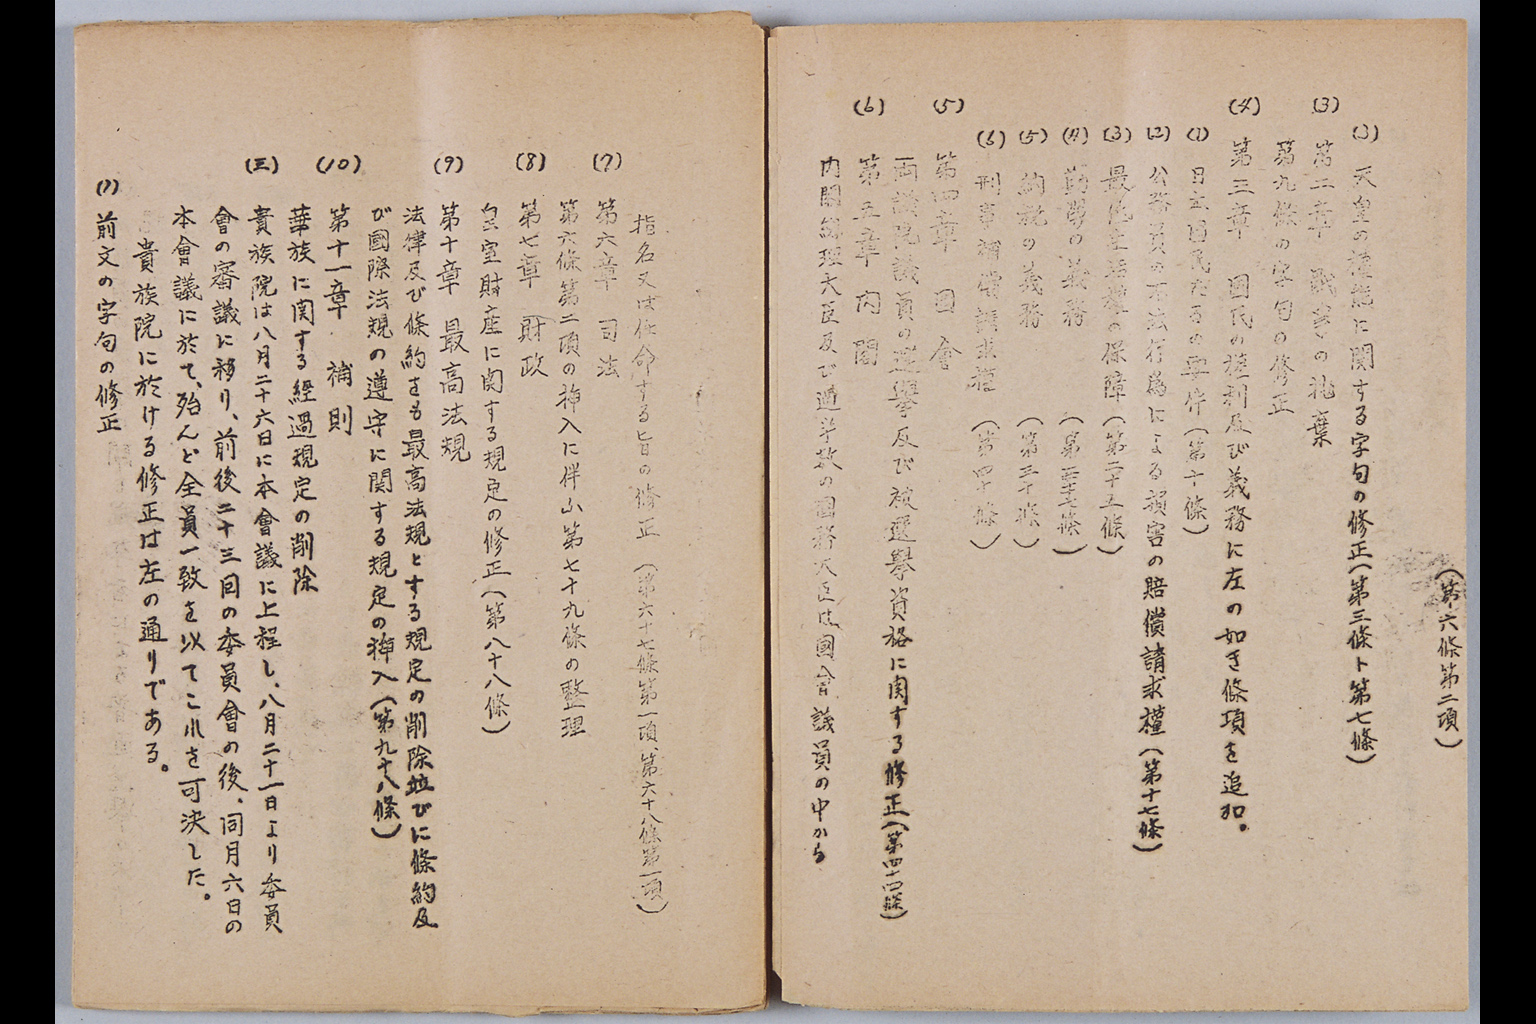 (第六條第二項)
(3) 天皇の權能に関する字句の修正(第三條ト第七條)
(3) 第二章 戰爭の抛棄
第九條の字句の修正
(4) 第三章 國民の權利及び義務に左の如き條項を追加。
(1) 日本國民たるの要件(第十條)
(2) 公務員の不法行為による損害の賠償請求權(第十七條)
(3) 最低生活權の保障(第二十五條)
(4) 勤勞の義務 (第二十七條)
(5) 納税の義務 (第三十條)
(6) 刑事補償請求權 (第四十條)
(5) 第四章 國會
両議院議員の選擧及び被選擧資格に関する修正(第四十四條)
(6) 第五章 内閣
内閣総理大臣及び過半数の國務大臣は國會議員の中から
指名又は任命する旨の修正 (第六十七條第一項、第六十八條第一項)
(7) 第六章 司法
第六條第二項の挿入に伴ふ第七十九條の整理
(8) 第七章 財政
皇室財産に関する規定の修正(第八十八條)
(9) 第十章 最高法規
法律及び條約をも最高法規とする規定の削除並びに條約及
び國際法規の遵守に関する規定の挿入(第九十八條)
(10) 第十一章 補則
華族に関する経過規定の削除
(三) 貴族院は八月二十六日に本會議に上程し、八月二十一日より委員
會の審議に移り、前後二十三回の委員會の後、同月六日の
本會議に於て、殆んど全員一致を以てこれを可決した。
貴族院に於ける修正は左の通りである。
(1) 前文の字句の修正